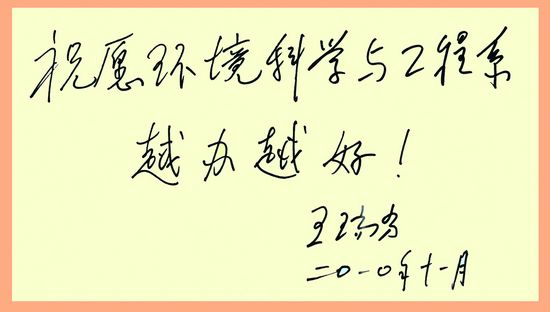 祝愿环境科学与工程系
越办越好！
王
二〇一〇年十一月